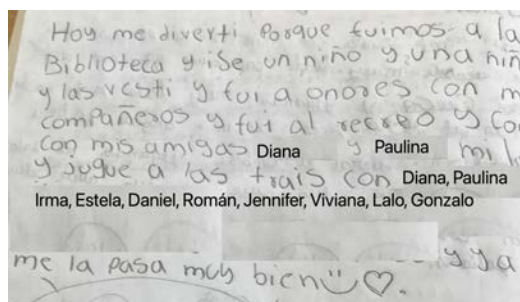 Hoy me diverti Porque fuimos a la
Biblioteca y ise un niño y una niñ
y las vesti y fui a onores con m
compañeros y fui al recreo y co
con mis amigas Diana y Paulina mi l
y jugue a las trais con Diana, Paulina
Irma, Estela, Daniel, Román, Jennifer, Viviana, Lalo, Gonzalo
y ya
me la pasa muy bien